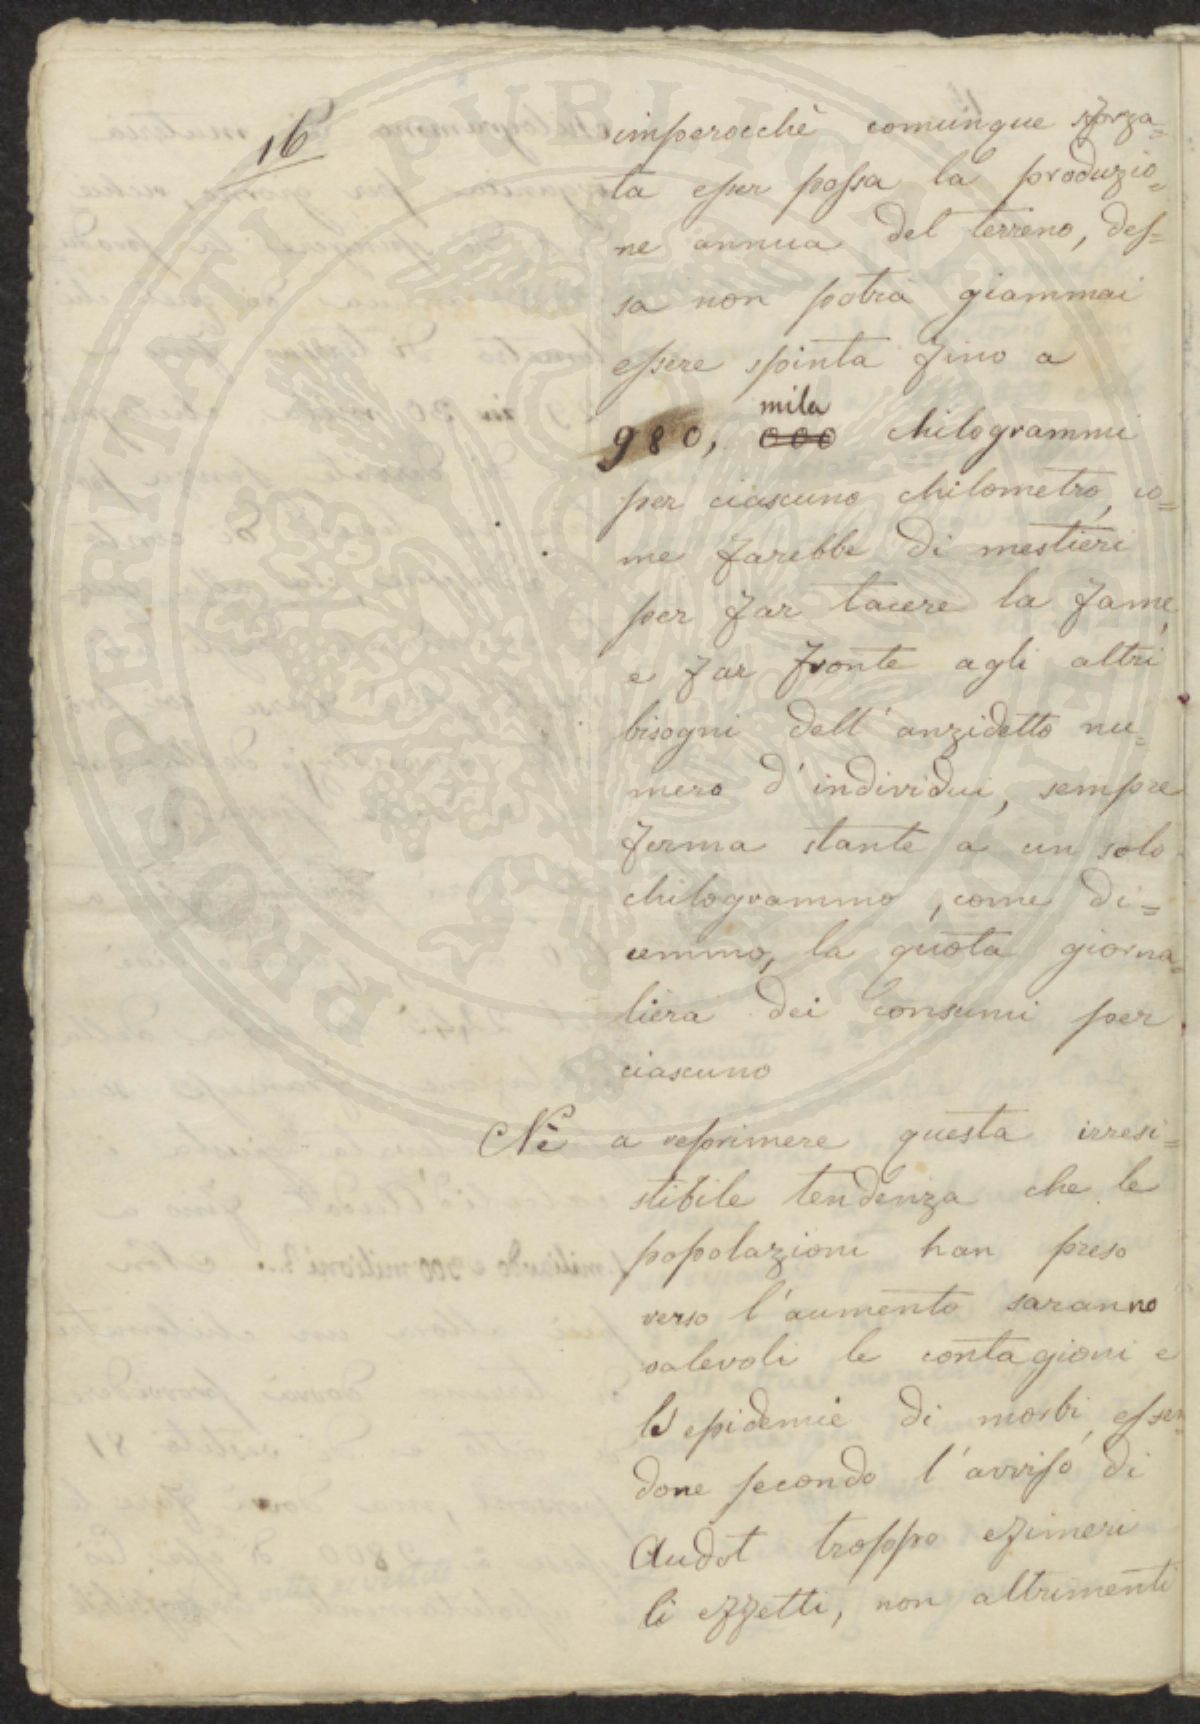 16
imperocchè comunque sforza=
ta esser possa la produzio=
ne annua del terreno, des=
sa non potrà giammai
essere spinta fino a
mila
980, 000 chilogrammi
per ciascuno chilometro, co=
me farebbe di mestieri
per far tacere la fame,
e far fronte agli altri
bisogni dell'anzidetto nu=
mero d'individui, sempre
ferma stante a un solo
chilogrammo, come di=
cemmo, la quota giorna=
liera dei consumi per
ciascuno
Nè a reprimere questa irresi=
stibile tendenza che le
popolazioni han preso
verso l'aumento saranno
valevoli le contagioni e
le epidemie di morbi, essen
done secondo l'avviso di
Audot troppo efimeri
li effetti, non altrimenti
PROSPERITATI PUBLICAE